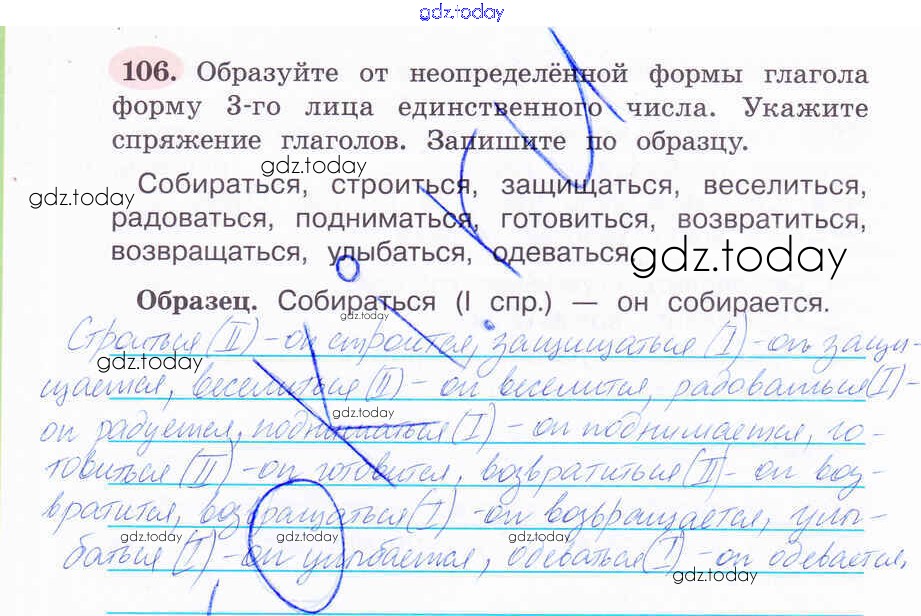 gdz.today
106. Образуйте от неопределённой формы глагола
форму 3-го лица единственного числа. Укажите
спряжение глаголов. Запишите по образцу.
gdz.today
gdz.today
Собираться, строиться, защищаться, веселиться,
радоваться, подниматься, готовиться, возвратиться,
возвращаться, улыбаться, одеваться.
gdz.today
Образец. Собираться (I спр.) — он собирается.
gdz.today
Строиться (II) - он строится, защищаться (I) - он защи-
gdz.today
щается, веселиться (II) - он веселится, радоваться (I) -
gdz.today
он радуется, подниматься (I) - он поднимается, го-
товиться (II) - он готовится, возвратиться (II) - он воз-
вратится, возвращаться (I) - он возвращается, улы-
gdz.today gdz.today gdz.today
баться (I) - он улыбается, одеваться (I) - он одевается.
gdz.today